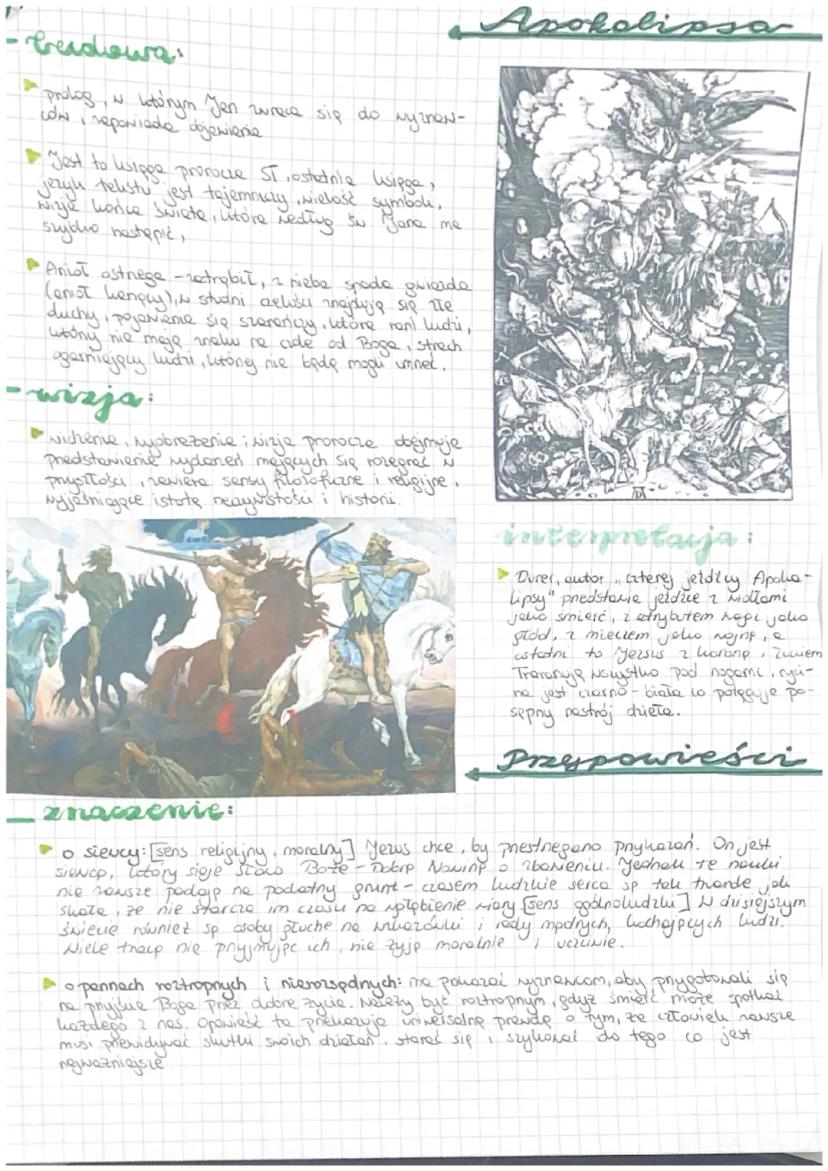 Apokalipsa
- budowa:
prolog, w którym Jan zwraca się do wyznaw-
ców, zapowiada objawienie
Jest to księga prorocza ST, ostatnia księga,
język tekstu jest tajemniczy, wielość symboli,
wizja końca świata, która według św Jana ma
szybko nastąpić,
Anioł ostrzega - zatrąbił, z nieba spada gwiazda
(anioł , w studni czeluści znajdują się złe
duchy, pojawienie się szarańczy, która rani ludzi,
którzy nie mają znaku na czole od Boga, strach
ogarniający ludzi, którzy nie będą mogli umrzeć.
- wizja:
widzenie, wyobrażenie; wizja prorocza obejmuje
przedstawienie wydarzeń mających się rozegrać w
przyszłości, zawiera sensy filozoficzne i religijne,
wyjaśniające istotę rzeczywistości i historii.
interpretacja:
Durer, autor "czterej jeźdźcy Apoka-
lipsy" przedstawia jeźdźca z widłami
jako śmierć, z atrybutem wagi jako
głód, z mieczem jako wojnę, a
ostatni to Jezus z koroną, łukiem
Tratują wszystko pod nogami, ryci-
na jest czarno-biała co potęguje po-
sępny nastrój dzieła.
Przypowieści
- znaczenie:
o siewcy: [sens religijny, moralny] Jezus chce, by przestrzegano przykazań. On jest
siewcą, który sieje słowo Boże - Dobrą Nowinę o zbawieniu. Jednak te nauki
nie zawsze padają na podatny grunt - czasem ludzkie serca są tak twarde jak
skała, że nie starcza im czasu na zgłębienie wiary [sens ogólnoludzki] W dzisiejszym
świecie również są osoby głuche na wskazówki i rady mądrych, kochających ludzi.
Wiele tracą nie przyjmując ich, nie żyją moralnie i uczciwie.
o pannach roztropnych i nierozsądnych: ma pokazać wyznawcom, aby przygotowali się
na przyjście Boga przez dobre życie. Należy być roztropnym, gdyż śmierć może spotkać
każdego z nas. Opowieść ta przekazuje uniwersalną prawdę o tym, że człowiek zawsze
musi przewidywać skutki swoich działań, starać się i szykować do tego co jest
najważniejsze